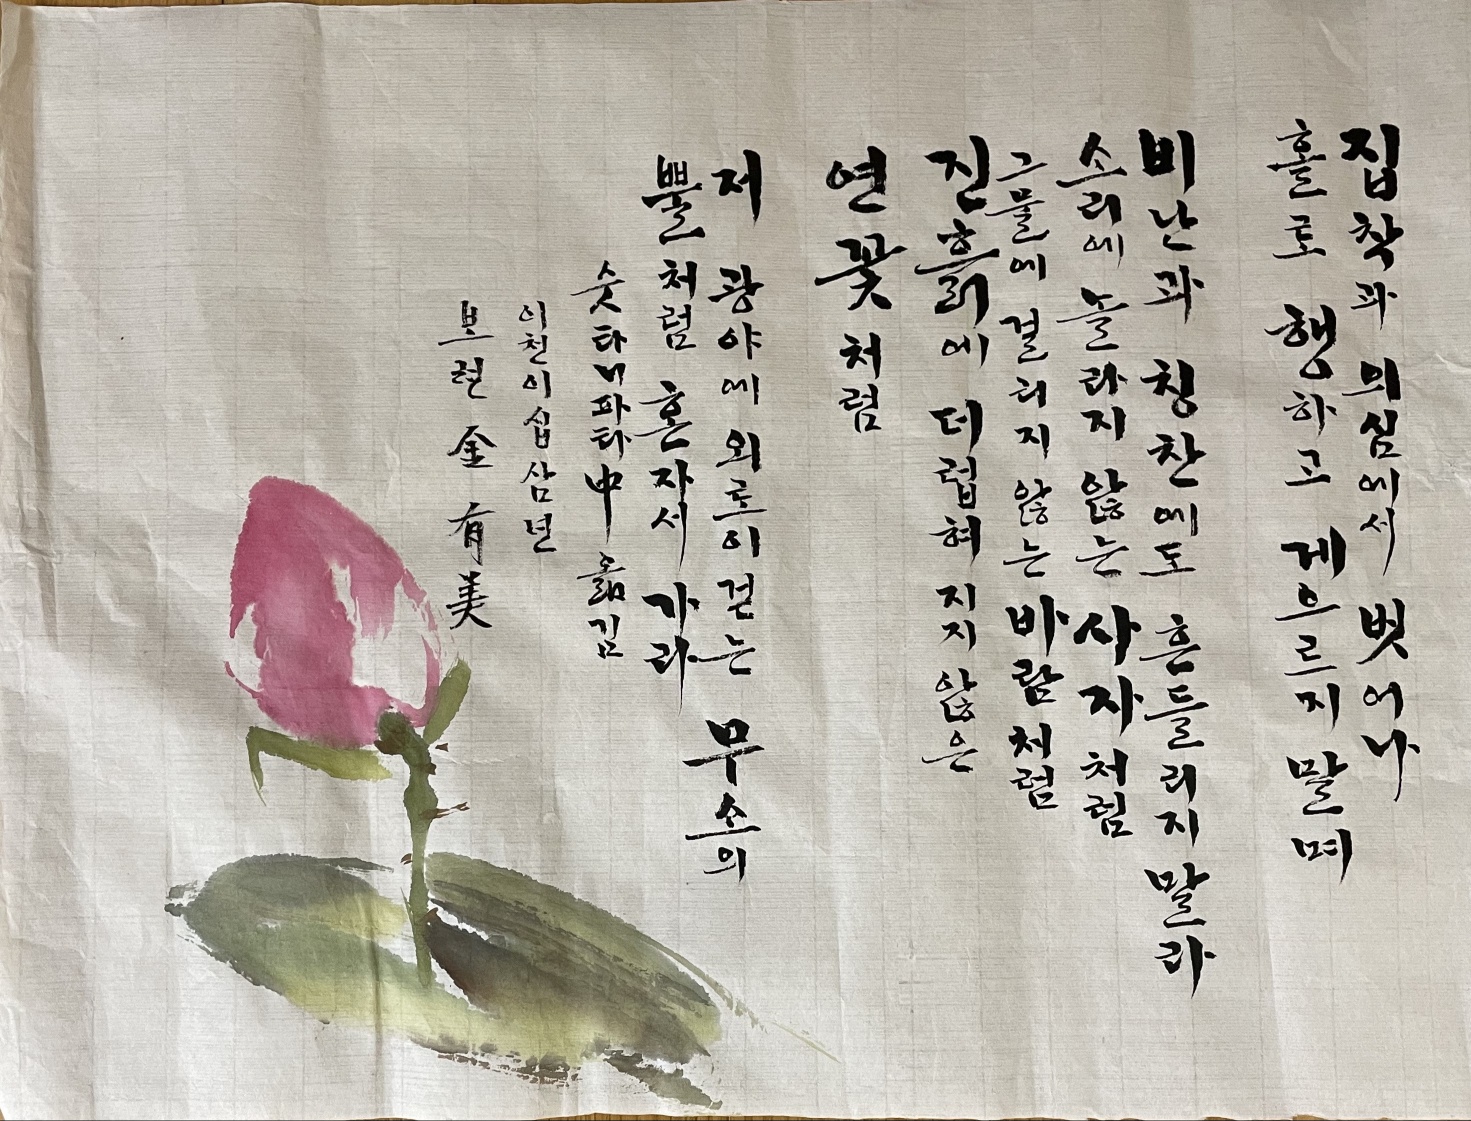 집착과 의심에서 벗어나
홀로 행하고 게으르지 말며
비난과 칭찬에도 흔들리지 말라
소리에 놀라지 않는 사자처럼
그물에 걸리지 않는 바람처럼
진흙에 더렵혀 지지 않은
연꽃처럼
저 광야에 외로이 걷는 무소의
뿔처럼 혼자서 가라
숫타니파타中 옮김
이천이십삼년
보련 金有美